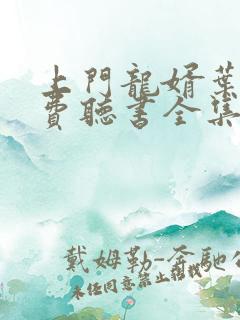 上門龍婿葉
費聽書全集
戴姆勒-奔馳公
未任同意禁止轉載